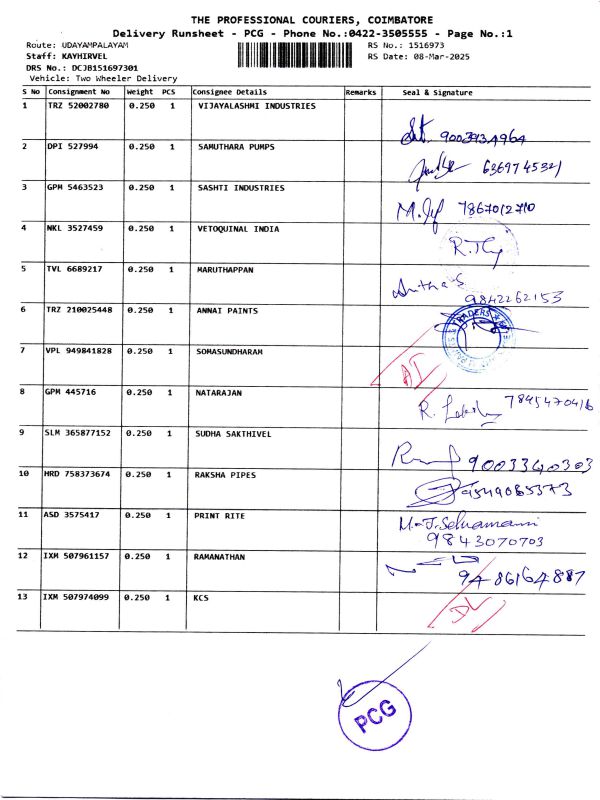 THE PROFESSIONAL COURIERS, COIMBATORE
Delivery Runsheet - PCG - Phone No.:0422-3505555 - Page No.:1
Route: UDAYAMPALAYAM RS No.: 1516973
Staff: KAYHIRVEL RS Date: 08-Mar-2025
DRS No.: DCJB151697301
Vehicle: Two Wheeler Delivery
S No Consignment No Weight PCS Consignee Details Remarks Seal & Signature
1 TRZ 52002780 0.250 1 VIJAYALASHMI INDUSTRIES
2 DPI 527994 0.250 1 SAMUTHARA PUMPS
6369745321
3 GPM 5463523 0.250 1 SASHTI INDUSTRIES
7867012710
4 NKL 3527459 0.250 1 VETOQUINAL INDIA
5 TVL 6689217 0.250 1 MARUTHAPPAN
Anitha S
9842262153
6 TRZ 210025448 0.250 1 ANNAI PAINTS
TRADERS
7 VPL 949841828 0.250 1 SOMASUNDHARAM
8 GPM 445716 0.250 1 NATARAJAN
7845470416
9 SLM 365877152 0.250 1 SUDHA SAKTHIVEL
9003340303
10 HRD 758373674 0.250 1 RAKSHA PIPES
9549085373
11 ASD 3575417 0.250 1 PRINT RITE
M.J.Selvamani
9843070703
12 IXM 507961157 0.250 1 RAMANATHAN
9486164887
13 IXM 507974099 0.250 1 KCS
DL
PCG